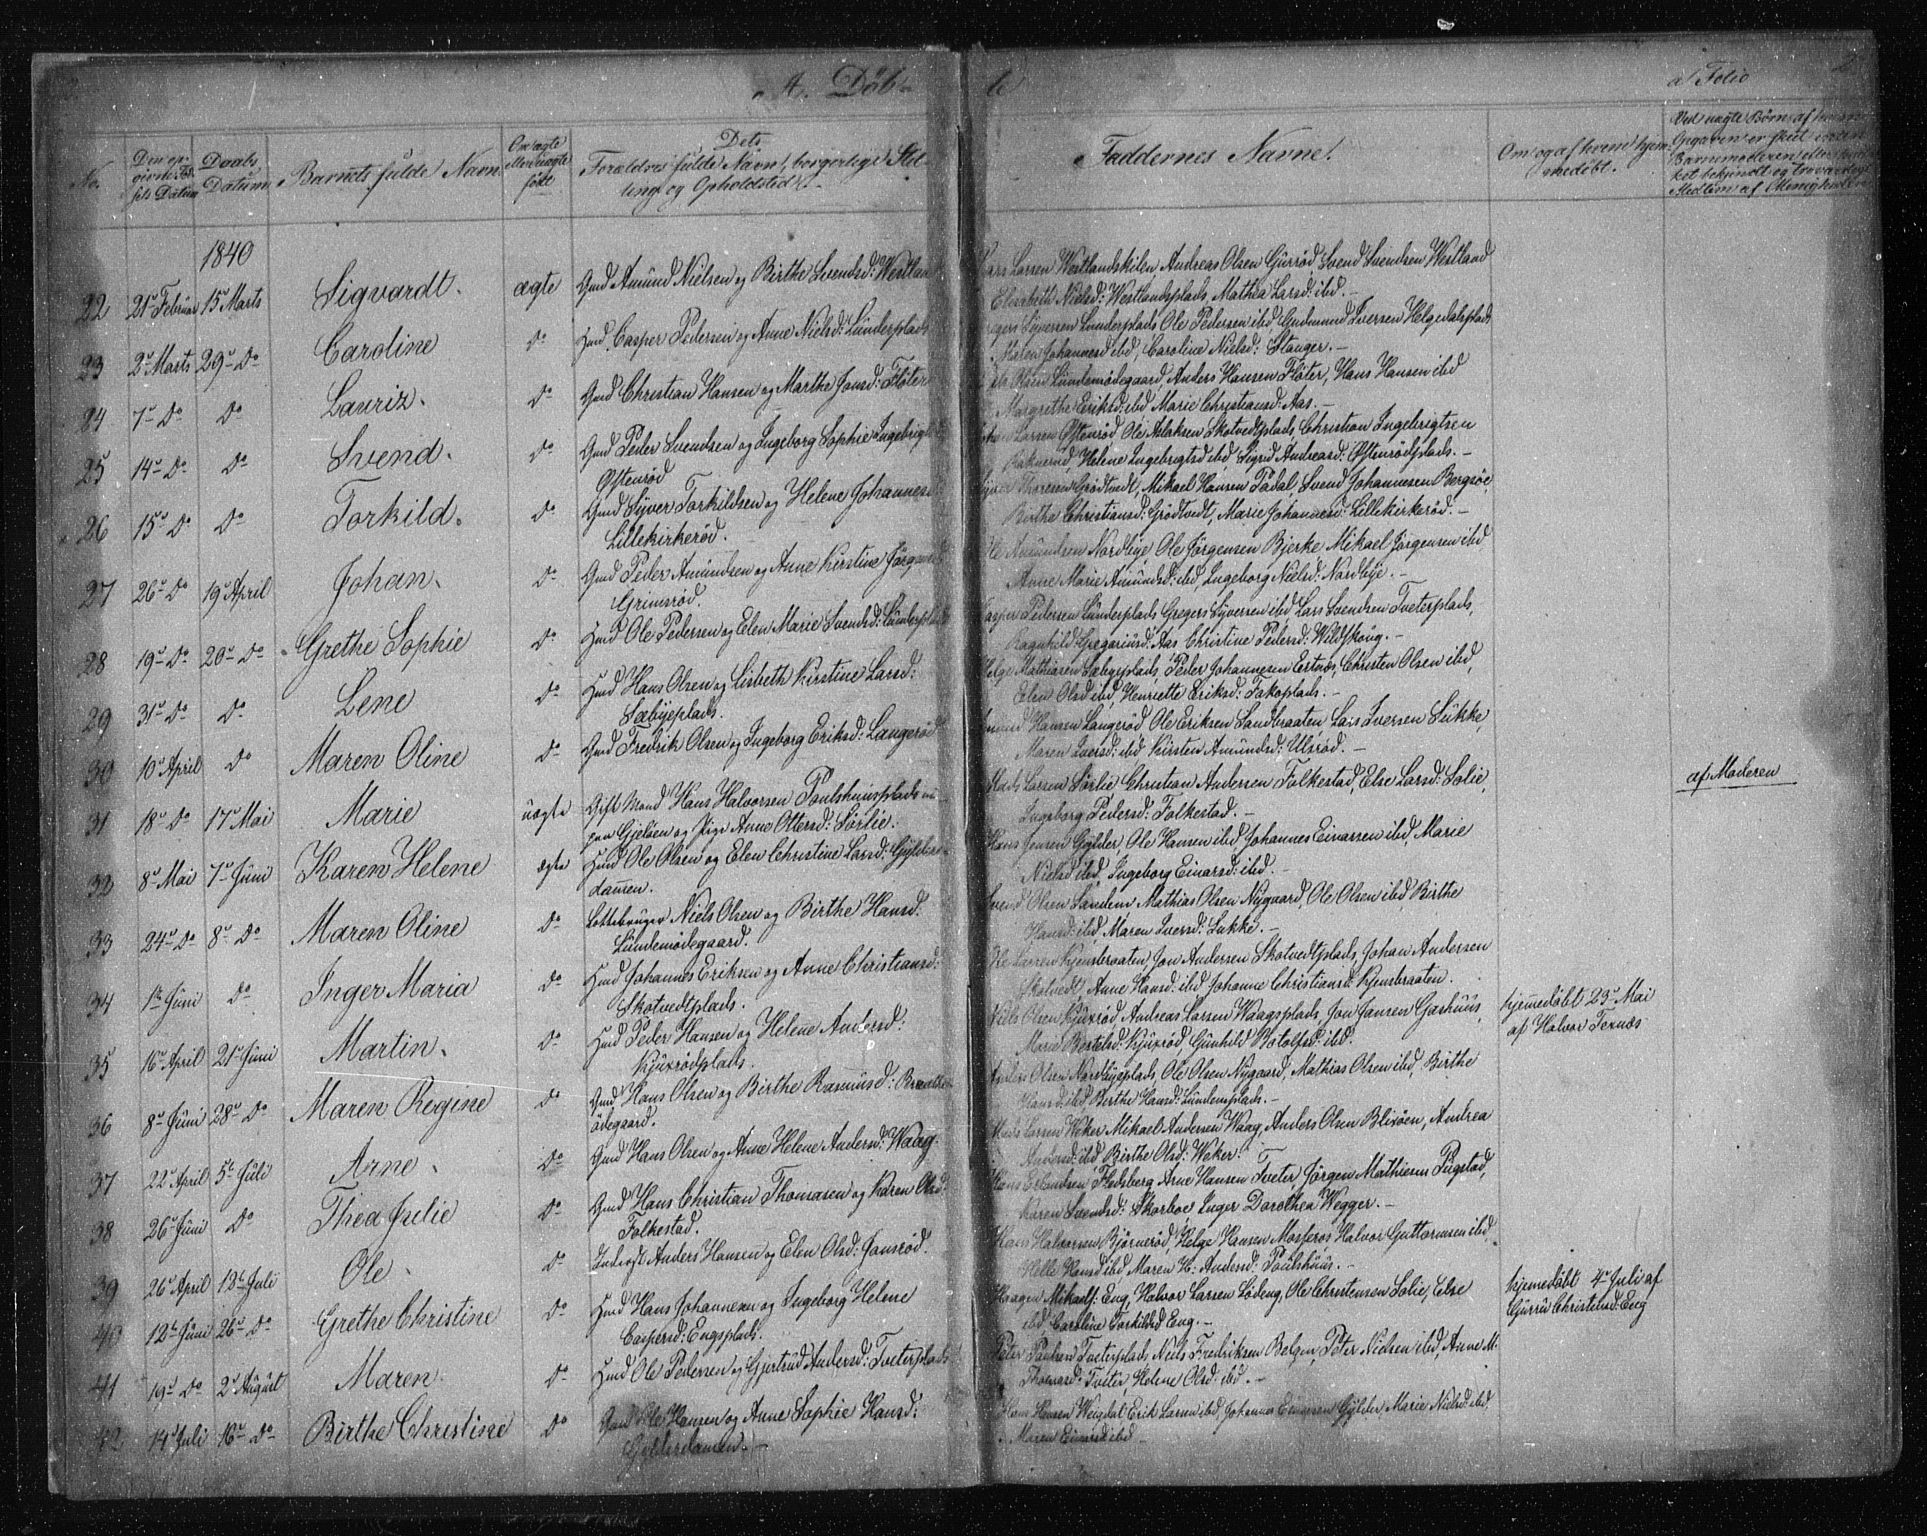 A. Döbte
a/ Folio
2
No.
Den opgivne Fødsels Datum
Daabs Datum
Barnets fulde Navn
Om ægte eller uægte født
Dets Forældres fulde Navn, borgerlige Stilling og Opholdsted
Faddernes Navne.
Om og af hvem hjemmedøbt.
Ved uægte Børn, af hvem
1840
22 21 Februar 15 Marts Sigvardt. ægte Gmd Amund Nielsen og Birthe Svendsd: Westland
Lars Larsen Westlandskilen, Andreas Olsen Gurrød Svend Svendsen Westland
Elisabeth Nielsd: Westlandsplads, Mathea Larsd: ibd.-
23 2 Marts 29 Do Caroline Do Hmd Casper Pedersen og Anne Nielsd: Lunderplads
Gregers Syversen Lunderplads Ole Pedersen ibd Gudmund Iversen Helgedalsplads
Maren Johannesd ibd, Caroline Nielsd: Stanger.-
24 7 Do Do Lauriz. Do Gmd Christian Hansen og Marthe Jonsd: Fløter
Olsen Lundemødegaard, Anders Hansen Fløter, Hans Hansen ibd
Margrethe Eriksd: ibd Marie Christiansd: Aas.-
25 14 Do Do Svend. Do Gmd Peder Svendsen og Ingeborg Sophie Ingebrigtsd
Østenrød
Larsen Østenrød, Ole Aslaksen Skotvedtplads Christian Ingebrigtsen
Raknerud, Helene Ingebrigtsd ibd Sigrid Andreasd: Østenrødplads.-
26 15 Do Do Torkild. Do Gmd Syver Torkildsen og Helene Johannesd
Lillekirkerød.
Syver Thoresen Grødtvedt, Mikael Hansen Pådal Svend Johannesen Bergsøe,
Birthe Christiansd: Grødtvedt, Marie Johannesd: Lillekirkerød.-
27 26 Do 19 April Johan. Do Gmd Peder Amundsen og Anne Kirstine Jörgensd
Grimsrød.
Ole Amundsen Nordbye Ole Jörgensen Bjerke Mikael Jörgensen ibd
Anne Marie Amundsd: ibd, Ingeborg Nielsd: Nordbye.-
28 19 Do 20 Do Grethe Sophie Do Hmd Ole Pedersen og Elen Marie Svendsd: Lunderplads
Casper Pedersen Lunderplads Gregers Syversen ibd Lars Svendsen Tveterplads,
Ragnhild Gregariusd: Aas Christine Pedersd: Wildskoug.-
29 31 Do Do Lene Do Hmd Hans Olsen og Lisbeth Kirstine Larsd:
Sæbyeplads.
Helge Mathiasen Sæbyeplads, Peder Johannesen Ertnæs, Christen Olsen ibd,
Elen Olsd ibd, Henriette Eriksd: Takoplads.-
30 10 April Do Maren Oline Do Gmd Fredrik Olsen og Ingeborg Eriksd: Langerød
Amund Hansen Langerød Ole Eriksen Sandbraaten Lars Iversen Sukke,
Maren Iversd: ibd Kirsten Amundsd: Ulsrød.-
31 18 Do 17 Mai Marie uægte Gift Mand Hans Halvorsen Poulshuusplads nu
paa Gjeløen og Pige Anne Ottersd: Sørlie.
Mads Larsen Sørlie Christian Andersen Folkestad, Else Larsd: Solie,
Ingeborg Pedersd: Folkestad.-
af Moderen
32 8 Mai 7 Juni Karen Helene ægte Hmd Ole Olsen og Elen Christine Larsd: Gylder
damen.
Hans Jensen Gylder, Ole Hansen ibd Johannes Einarsen ibd, Marie
Nielsd ibd, Ingeborg Einarsd: ibd.-
33 24 Do 8 Do Maren Oline Do Lottebruger Niels Olsen og Birthe Hansd:
Lundemødegaard.
Svend Olsen Sandem Mathias Olsen Nygaard, Ole Olsen ibd Birthe
Hansd: ibd, Maren Iversd: Sukke.-
34 1 Juni Do Inger Maria Do Hmd Johannes Eriksen og Anne Christiansd:
Skotvedtplads.
Ole Larsen Kjensbraaten, Jon Andersen Skotvedtplads, Johan Andersen
Skotvedt Anne Hansd: ibd Johanne Christiansd: Kjensbraaten.
35 16 April 21 Juni Martin. Do Hmd Peder Hansen og Helene Andersd:
Kjuxrødplads.
Niels Olsen Kjuxrød, Andreas Larsen Waagsplads, Jon Jansen Gashuus,
Marie Bertelsd: Kjuxrød Gunhild Botolfsd: ibd.
hjemmedøbt 23 Mai
af Halvor Texnæs
36 8 Juni 28 Do Maren Regine Do Gmd Hans Olsen og Birthe Rasmusd:
ødegaard.
Anders Olsen Nordbyeplads, Ole Olsen Nygaard, Mathias Olsen ibd, Birthe
Hansd: ibd Birthe Hansd: Lundemplads.-
37 22 April 5 Juli Arne. Do Gmd Hans Olsen og Anne Helene Andersd: Waag
Mads Larsen Weker Mikael Andersen Waag, Anders Olsen Blixøen, Andrea
ibd Birthe Olsd: Weker.
38 26 Juni Do Thea Julie Do Gmd Hans Christian Thomasen og Karen Olsd
Folkestad.
Hans Erlandsen Fledsberg Arne Hansen Tveter, Jørgen Mathiesen Pugstad,
Karen Svendsd: Skorboe Inger Dorothea Wegger.-
39 26 April 12 Juli Ole. Do Inderst Anders Hansen og Elen Olsd: Jonsrød.
Hans Halvorsen Bjørnerød, Helge Hansen Mosserøs Halvor Guttormsen ibd,
Helle Hansd ibd Maren H: Andersd: Poulshuus.-
40 12 Juni 26 Do Grethe Christine Do Hmd Hans Johannesen og Ingeborg Helene
Caspersd: Engsplads.
Haagen Mikaels: Eng, Halvor Larsen Lødeng, Ole Christensen Solie, Else
ibd Caroline Torkildsd Eng.-
hjemmedøbt 4 Juli af
Gurru Christensd: Eng
41 19 Do 2 August Maren Do Hmd Ole Pedersen og Gjertrud Andersd: Tveterplads
Peter Paulsen Tveterplads, Niels Fredriksen Belgen, Peter Nielsen ibd, Anne M.
Thomasd: Tveter, Helene Olsd: ibd.-
42 14 Juli 16 Do Birthe Christine Do Gmd Ole Hansen og Anne Sophie Hansd:
Gylderdamen.-
Hans Hansen Weigdal, Erik Larsen ibd, Johannes Einarsen Gylder, Marie Nielsd: ibd,
Maren Einarsd ibd-